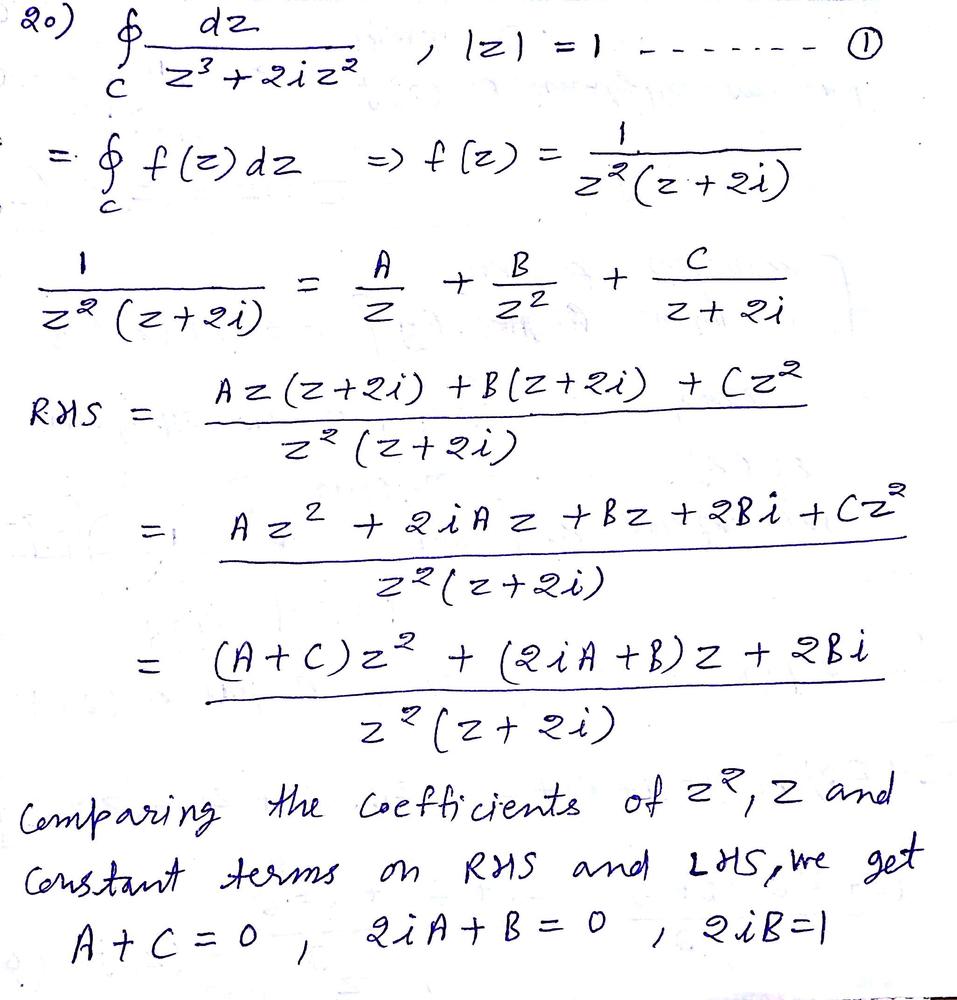 20) ∮_C dz/(z³ + 2iz²) , |z| = 1 ------- ①
= ∮_C f(z)dz => f(z) = 1/(z²(z + 2i))
1/(z²(z+2i)) = A/z + B/z² + C/(z+2i)
RHS = (Az(z+2i) + B(z+2i) + Cz²)/(z²(z+2i))
= (Az² + 2iAz + Bz + 2Bi + Cz²)/(z²(z+2i))
= ((A+C)z² + (2iA+B)z + 2Bi)/(z²(z+2i))
Comparing the coefficients of z², z and
constant terms on RHS and LHS, we get
A + C = 0 , 2iA + B = 0 , 2iB = 1